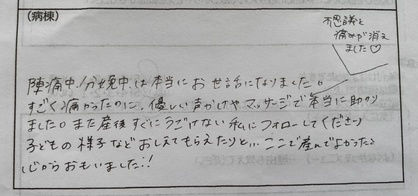 (病棟)
不思議と
痛みが消え
ました♡
陣痛中、分娩中は本当にお世話になりました。
すごく痛かったのに、優しい声かけやマッサージで本当に助かり
ました。また産後すぐにうごけない私にフォローしてくださり
子どもの様子などおしえてもらえたりと… ここで産んでよかったと
心からおもいました!!